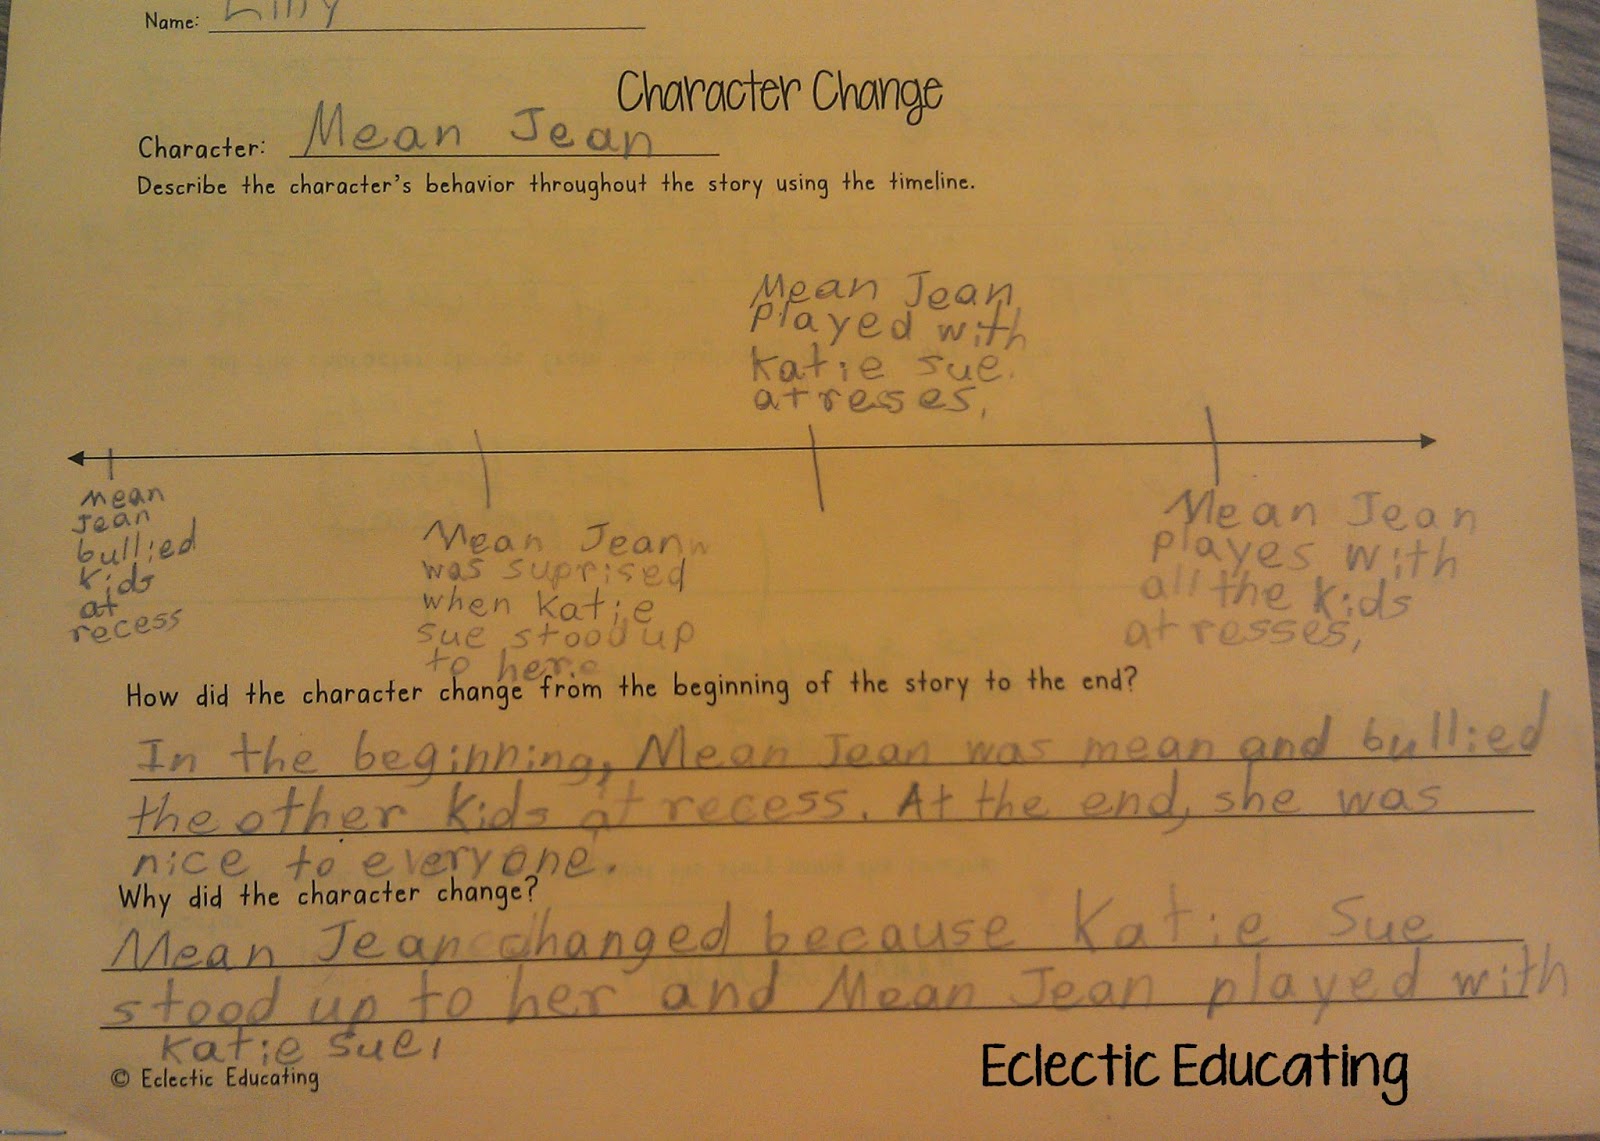 Name: Lilly
Character Change
Character: Mean Jean
Describe the character's behavior throughout the story using the timeline.
Mean Jean
played with
Katie Sue.
at resses,
Mean
Jean
bullied
kids
at
recess
Mean Jean
was suprised
when Katie
sue stood up
to her
Mean Jean
playes with
all the kids
at resses,
How did the character change from the beginning of the story to the end?
In the beginning, Mean Jean was mean and bullied
the other kids at recess. At the end, she was
nice to everyone.
Why did the character change?
Mean Jean changed because Katie Sue
stood up to her and Mean Jean played with
Katie Sue,
© Eclectic Educating
Eclectic Educating